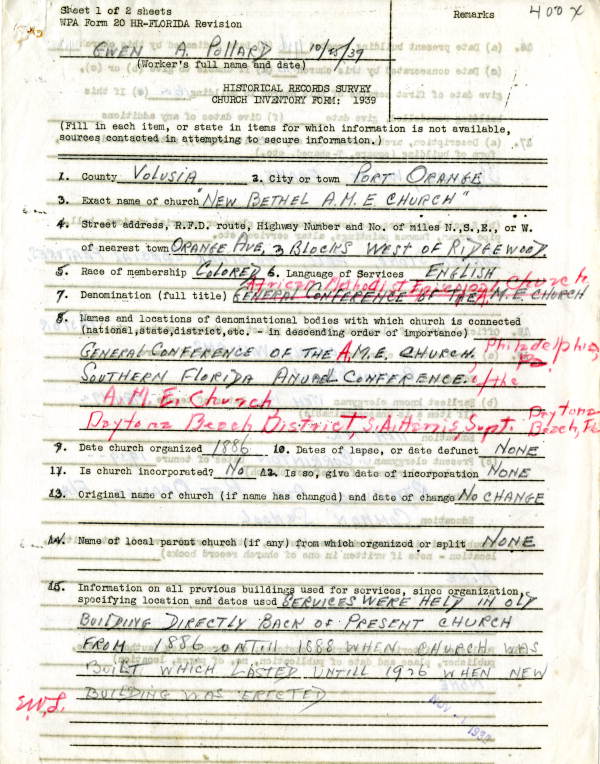 Sheet 1 of 2 sheets
WPA Form 20 HR-FLORIDA Revision
Remarks
400 X
GWEN A. POLLARD 10/25/39
(Worker's full name and date)
HISTORICAL RECORDS SURVEY
CHURCH INVENTORY FORM: 1939
(Fill in each item, or state in items for which information is not available,
sources contacted in attempting to secure information.)
1. County VOLUSIA 2. City or town PORT ORANGE
3. Exact name of church "NEW BETHEL A.M.E CHURCH"
4. Street address, R.F.D. route, Highway Number and No. of miles N.,S.,E., or W.
of nearest town ORANGE AVE, 3 BLOCKS WEST OF RIDGEWOOD.
5. Race of membership COLORED 6. Language of Services ENGLISH
African Methodist Episcopal Church
7. Denomination (full title) GENERAL CONFERENCE OF THE A.M.E CHURCH
8. Names and locations of denominational bodies with which church is connected
(national,state,district,etc. - in descending order of importance)
GENERAL CONFERENCE OF THE A.M.E. CHURCH. Philadelphia, Pa.
SOUTHERN FLORIDA ANUAL CONFERENCE of the
A.M.E. Church,
Daytona Beach District, S.A. Harris, Supt. Daytona Beach, Fla
9. Date church organized 1886 10. Dates of lapse, or date defunct NONE
11. Is church incorporated? NO 12. Is so, give date of incorporation NONE
13. Original name of church (if name has changed) and date of change NO CHANGE
14. Name of local parent church (if any) from which organized or split NONE
15. Information on all previous buildings used for services, since organization,
specifying location and dates used SERVICES WERE HELD IN OLD
BUILDING DIRECTLY BACK OF PRESENT CHURCH
FROM 1886 UNTILL 1888 WHEN CHURCH WAS
BUILT WHICH LASTED UNTILL 1926 WHEN NEW
BUILDING WAS ERECTED